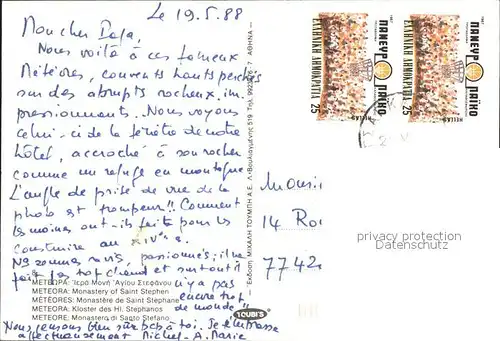 Le 19.5.88
Mon cher Papa,
Nous voilà à ces fameux
Météores, couvents hauts perchés
sur des abrupts rocheux im
pressionnants. Nous voyons
celui-ci de la fenêtre de notre
hôtel, accroché à son rocher
comme un refuge en montagne
L'angle de prise de vue de la
photo est trompeur!! Comment
les moines ont-ils fait pour les
construire au XIVe s.
Ns sommes ravis, passionnés; il ne
fait pas trop chaud et surtout il
n'y a pas
encore trop
de monde"
Nous pensons bien sur à toi. Je t'embrasse
affectueusement Michel-A. Marie
ΜΕΤΕΩΡΑ: Ἱερά Μονή Ἁγίου Στεφάνου
METEORA: Monastery of Saint Stephen
MÉTÉORES: Monastère de Saint Stephane
METEORA: Kloster des Hl. Stephanos
METEORE: Monastero di Santo Stefano
TOUBI'S
Ἔκδοση: ΜΙΧΑΛΗ ΤΟΥΜΠΗ Α.Ε. Λ. Βουλιαγμένης 519 Τηλ. ΑΘΗΝΑ
ΕΛΛΗΝΙΚΗ ΔΗΜΟΚΡΑΤΙΑ 25
ΠΑΝΕΥΡΩΠΑΪΚΟ
1987
HELLAS
ΕΛΛΗΝΙΚΗ ΔΗΜΟΚΡΑΤΙΑ 25
ΠΑΝΕΥΡΩΠΑΪΚΟ
1987
HELLAS
14
7742
privacy protection
Datenschutz